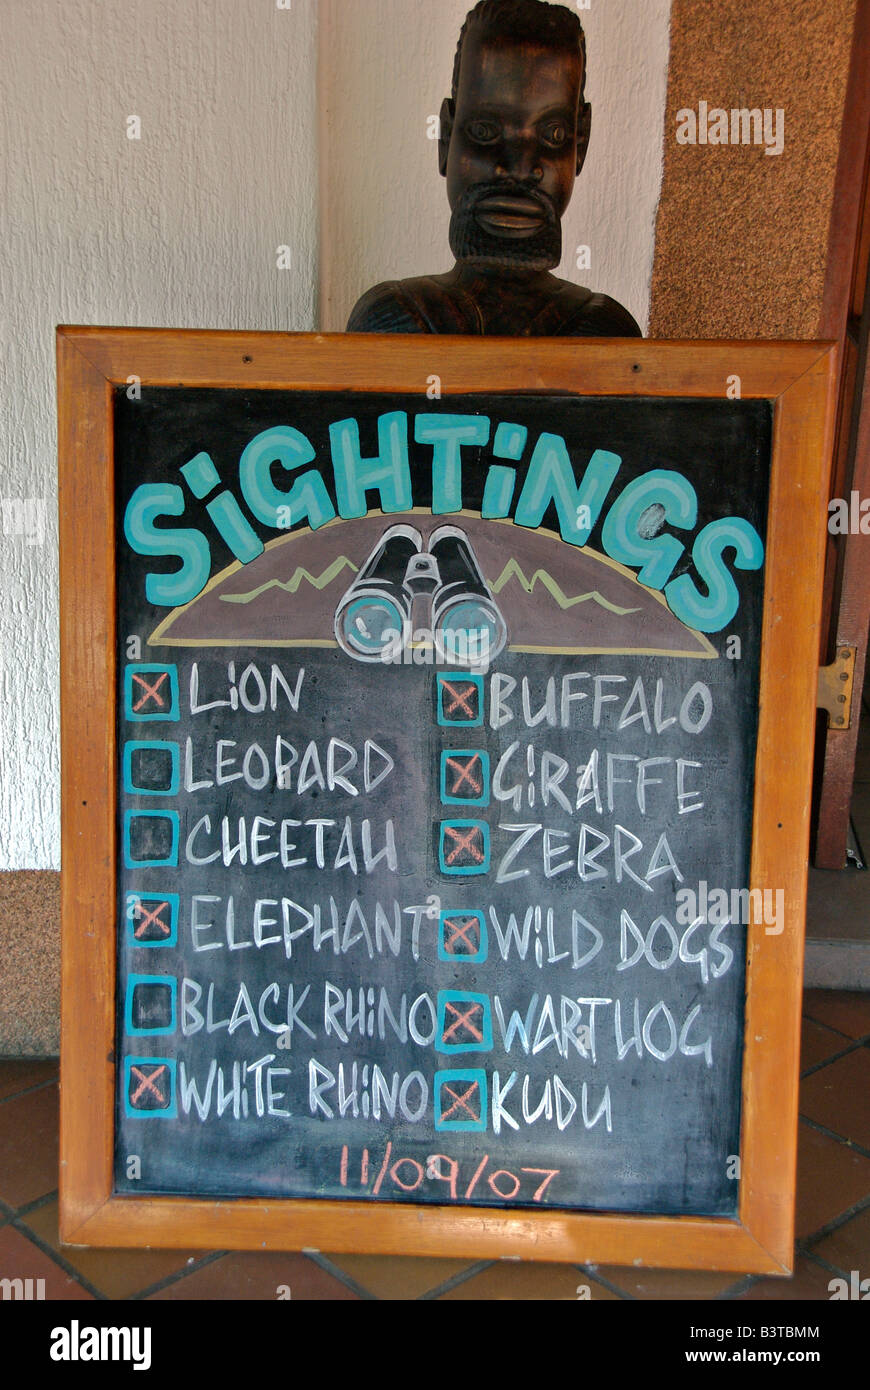 SiGHTiNGS
X LiON
LEOPARD
CHEETAH
X ELEPHANT
BLACK RHiNO
X WHiTE RHiNO
X BUFFALO
X GiRAFFE
X ZEBRA
X WiLD DOGS
X WARTHOG
X KUDU
11/09/07
a
alamy
Image ID: B3TBMM
www.alamy.com